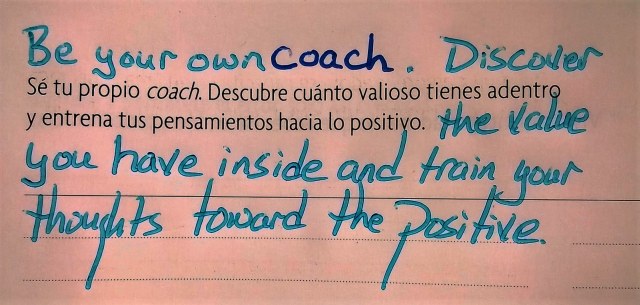 Be your own coach. Discover
Sé tu propio coach. Descubre cuánto valioso tienes adentro
y entrena tus pensamientos hacia lo positivo. the value
you have inside and train your
thoughts toward the positive.